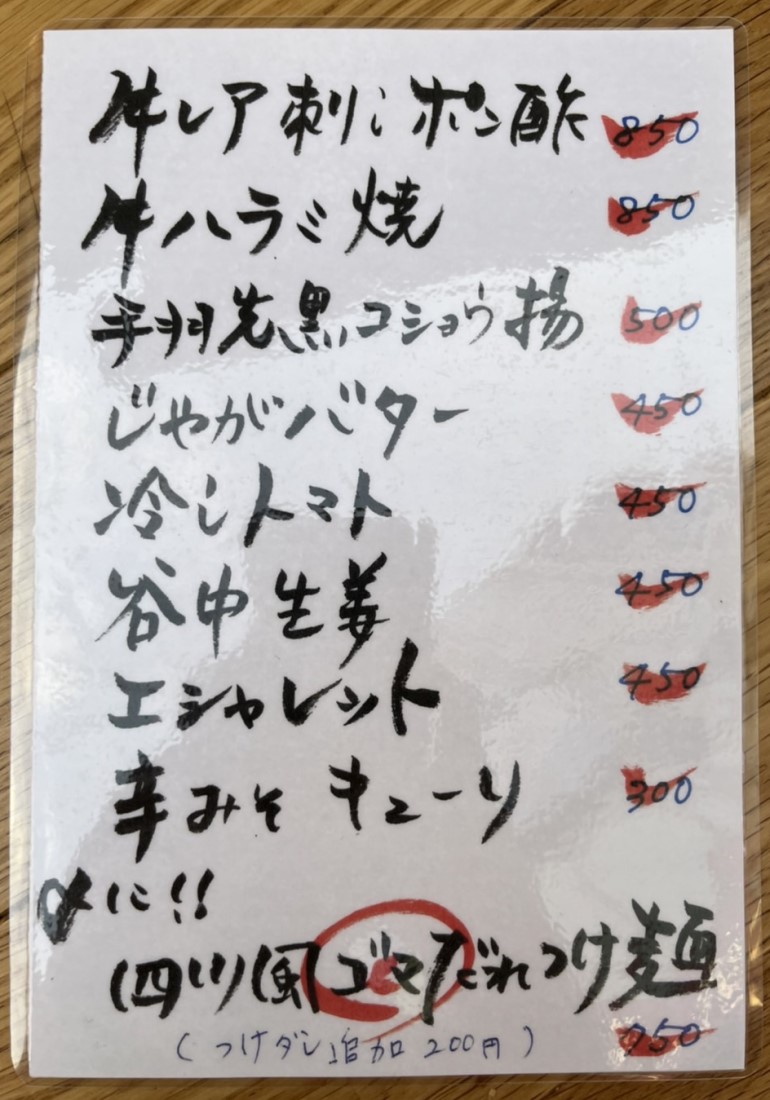 牛レア刺しポン酢 850
牛ハラミ焼 850
手羽先黒コショウ揚 500
じゃがバター 450
冷しトマト 450
谷中生姜 450
エシャレット 450
辛みそキューリ 300
〆に!!
四川風ゴマだれつけ麺
950
(つけダレ追加200円)